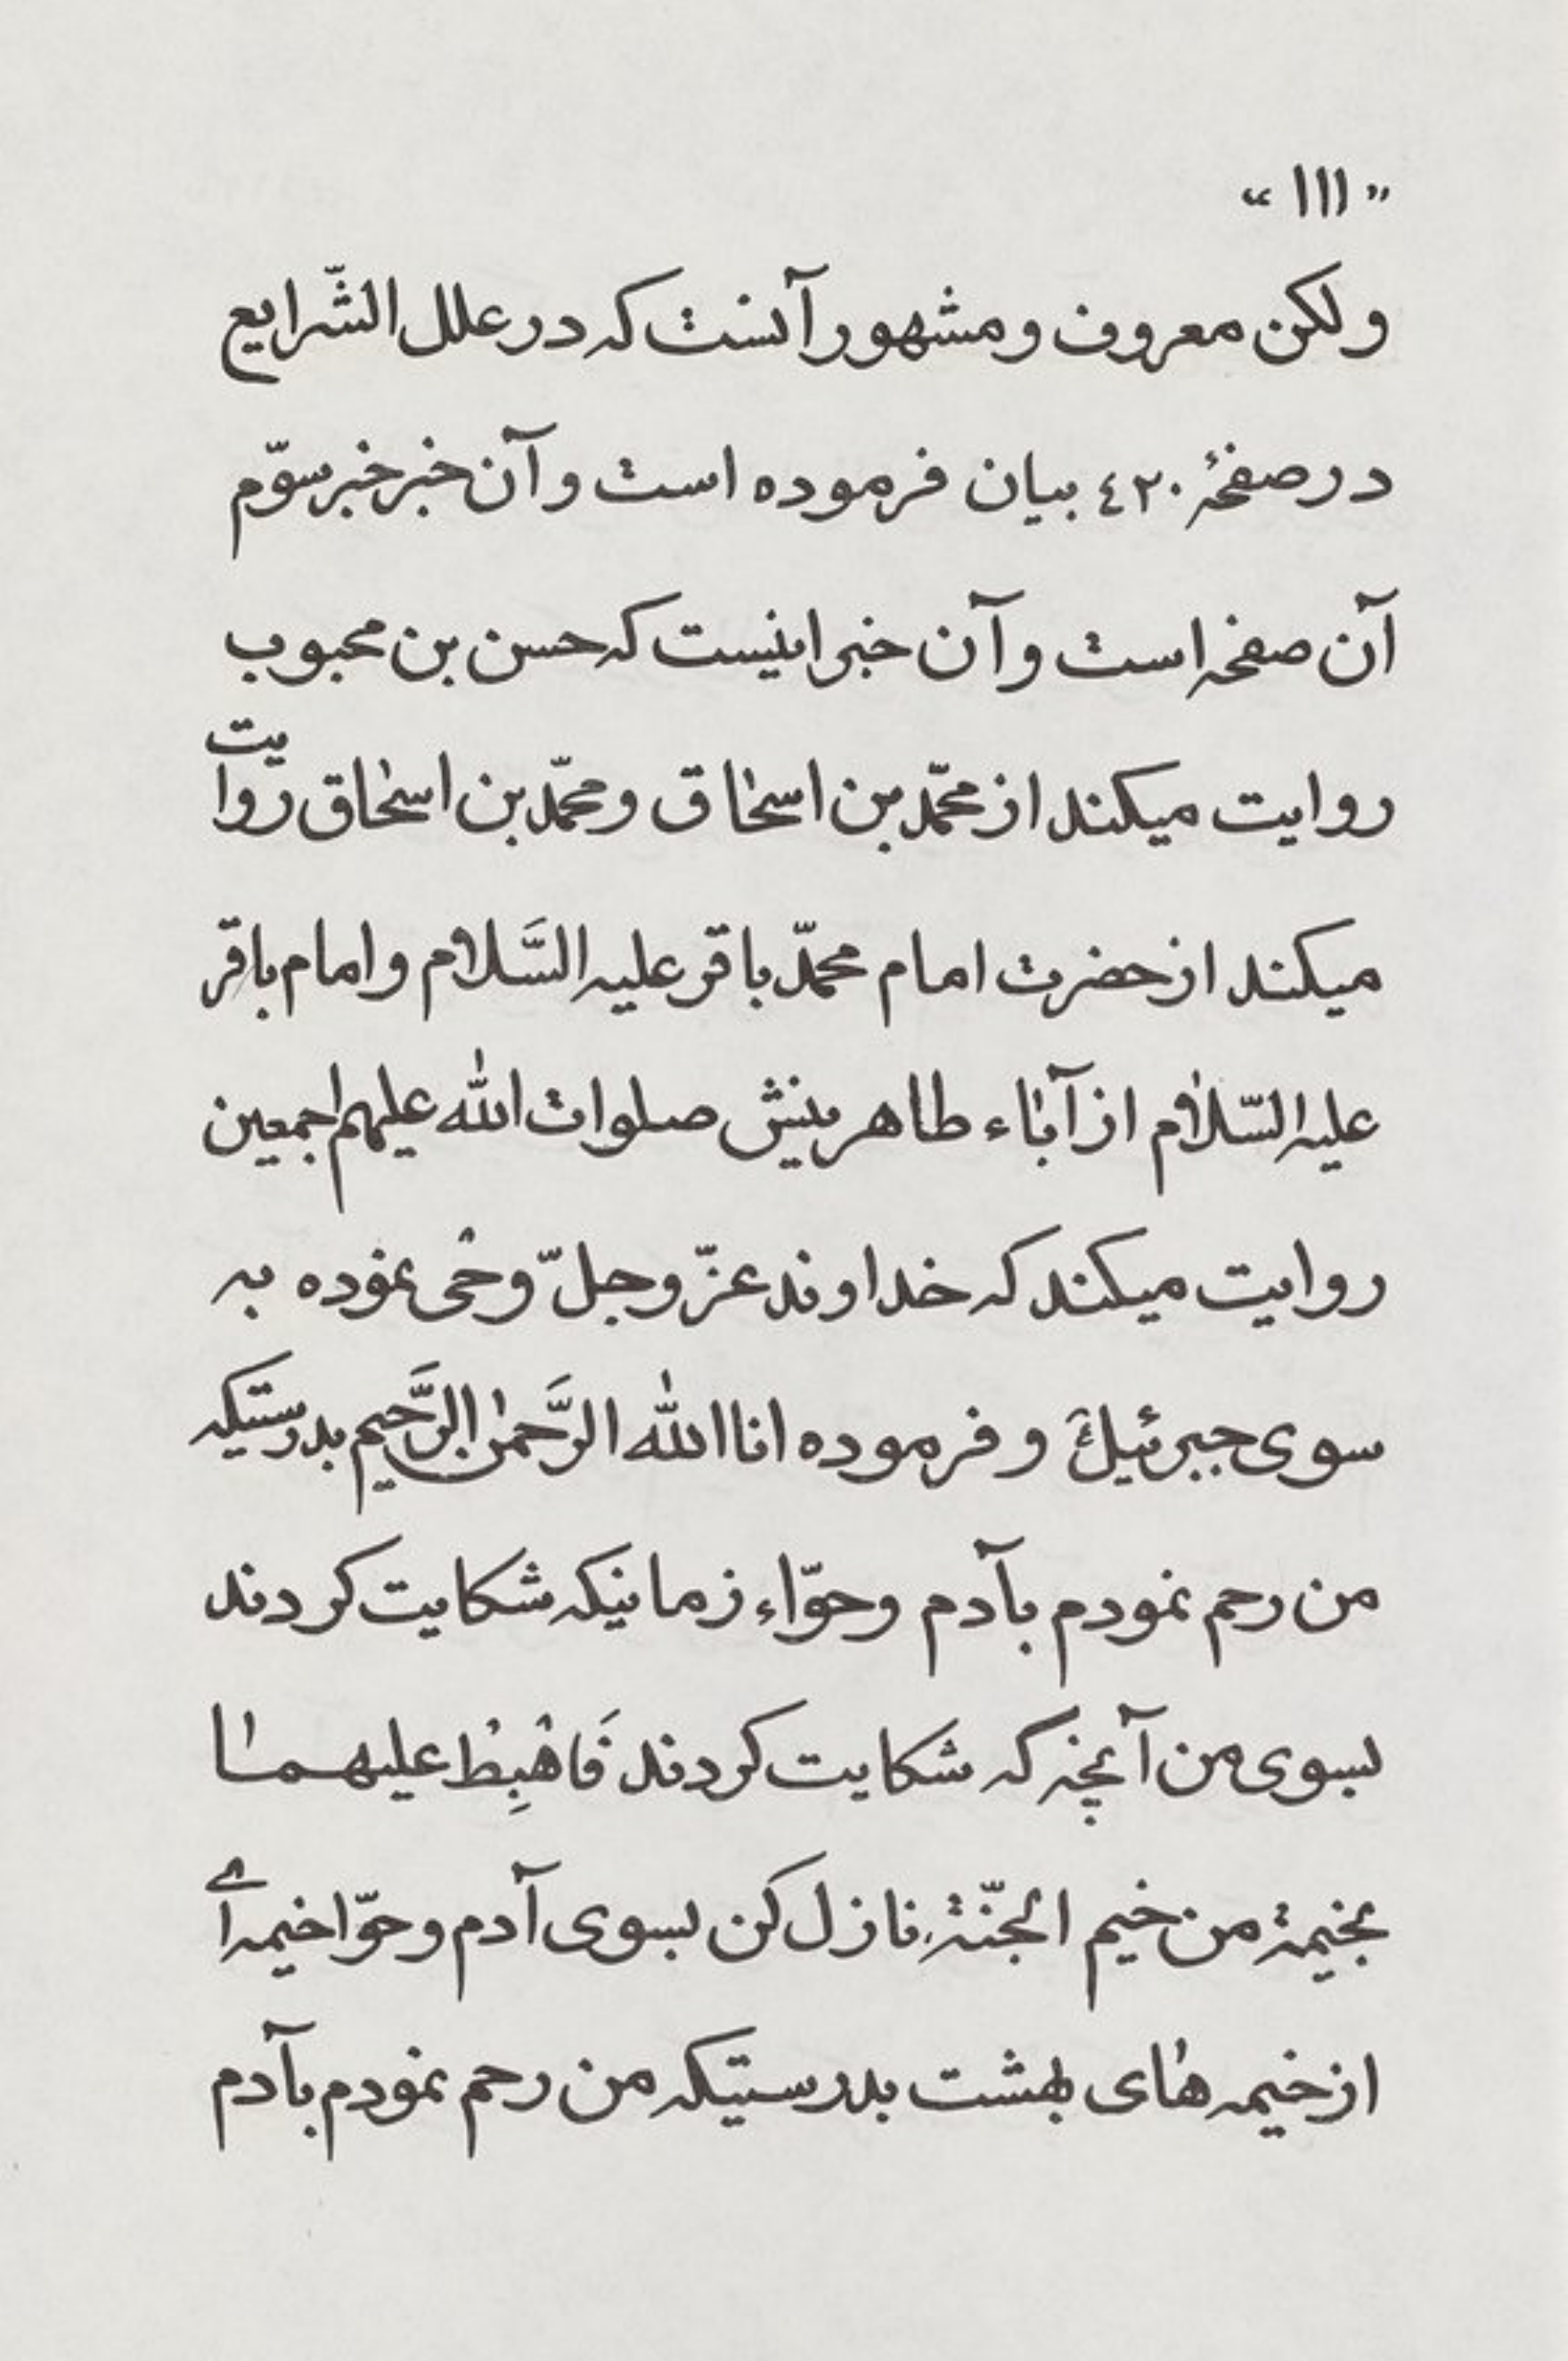 " ۱۱۱ "
ولکن معروف و مشهور آنست که در علل الشّرایع
در صفحهٔ ٤٢٠ بیان فرموده است و آن خبر خبر سوّم
آن صفحه است و آن خبر اینیست که حسن بن محبوب
روایت میکند از محمّد بن اسحاق و محمّد بن اسحاق روایت
میکند از حضرت امام محمّد باقر علیه السَّلام و امام باقر
علیه السّلام از آباء طاهرینش صلوات الله علیهم اجمعین
روایت میکند که خداوند عزّ وجلّ وحْی نموده به
سوی جبرئیل و فرموده انا الله الرَّحمن الرَّحیم بدرستیکه
من رحم نمودم بآدم وحوّاء زمانیکه شکایت کردند
بسوی من آنچه که شکایت کردند فَاهْبِطْ علیهما
بخیمة من خیم الجنّةِ نازل کن بسوی آدم و حوّا خیمه اے
از خیمه های بهشت بدرستیکه من رحم نمودم بآدم